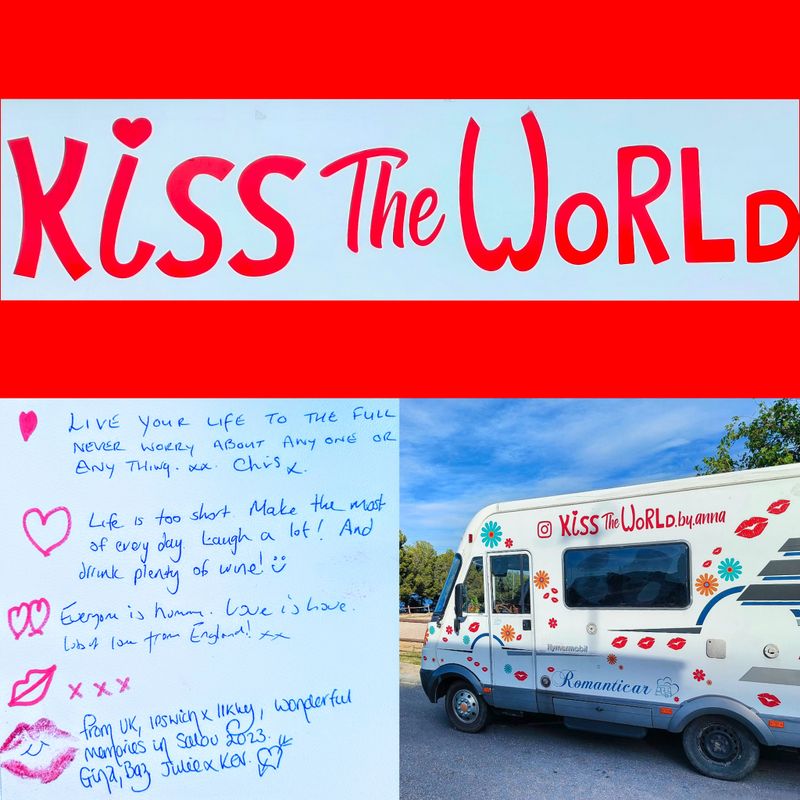 Kiss The World
LIVE YOUR LIFE TO THE FULL
NEVER WORRY ABOUT ANY ONE OR
ANY THING. xx. Chris x.
Life is too short. Make the most
of every day. Laugh a lot! And
drink plenty of wine!
Everyone is human. Love is Love.
Lots of love from England! xx
x x x
from UK, Ipswich x Ilkley, wonderful
memories in Salou 2023.
Gina, Baz Julie x Kev.
Kiss The World.by.anna
Hymermobil
Romanticar